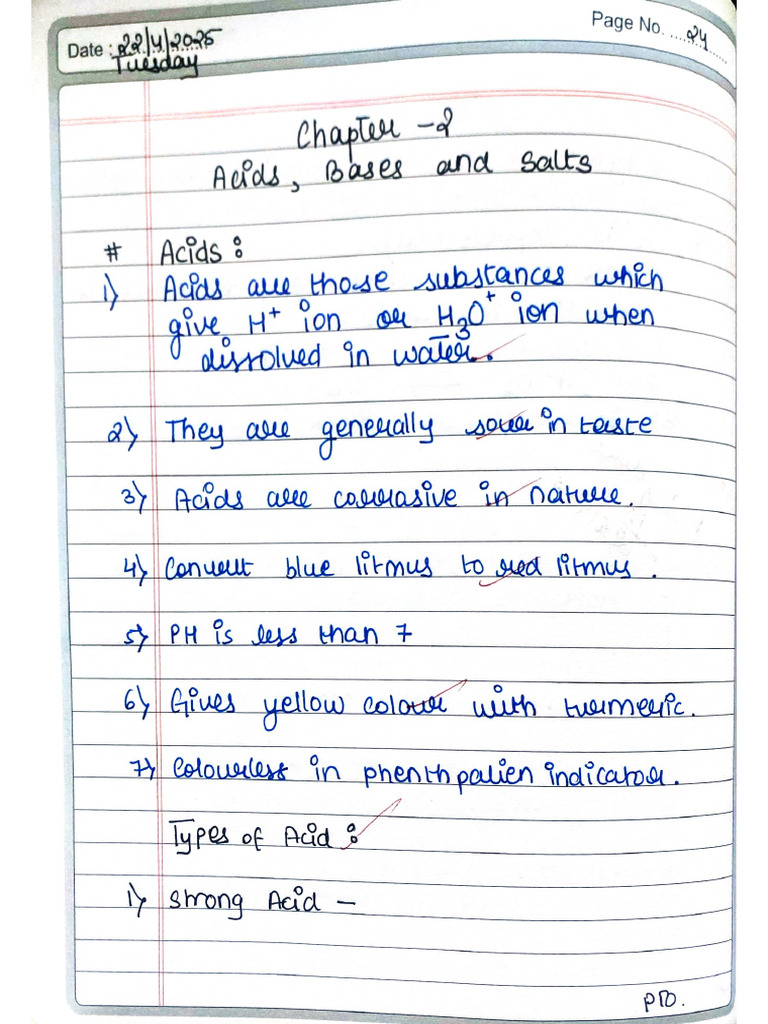 Date : 22/4/2025
Tuesday
Page No. 24
Chapter - 2
Acids, Bases and Salts
# Acids :
1) Acids are those substances which
give H+ ion or H3O+ ion when
dissolved in water.
2) They are generally sour in taste
3) Acids are corrasive in nature.
4) Convert blue litmus to red litmus.
5) PH is less than 7
6) Gives yellow colour with turmeric.
7) Colourless in phenthpalien indicator.
Types of Acid :
1) Strong Acid -
PTO.